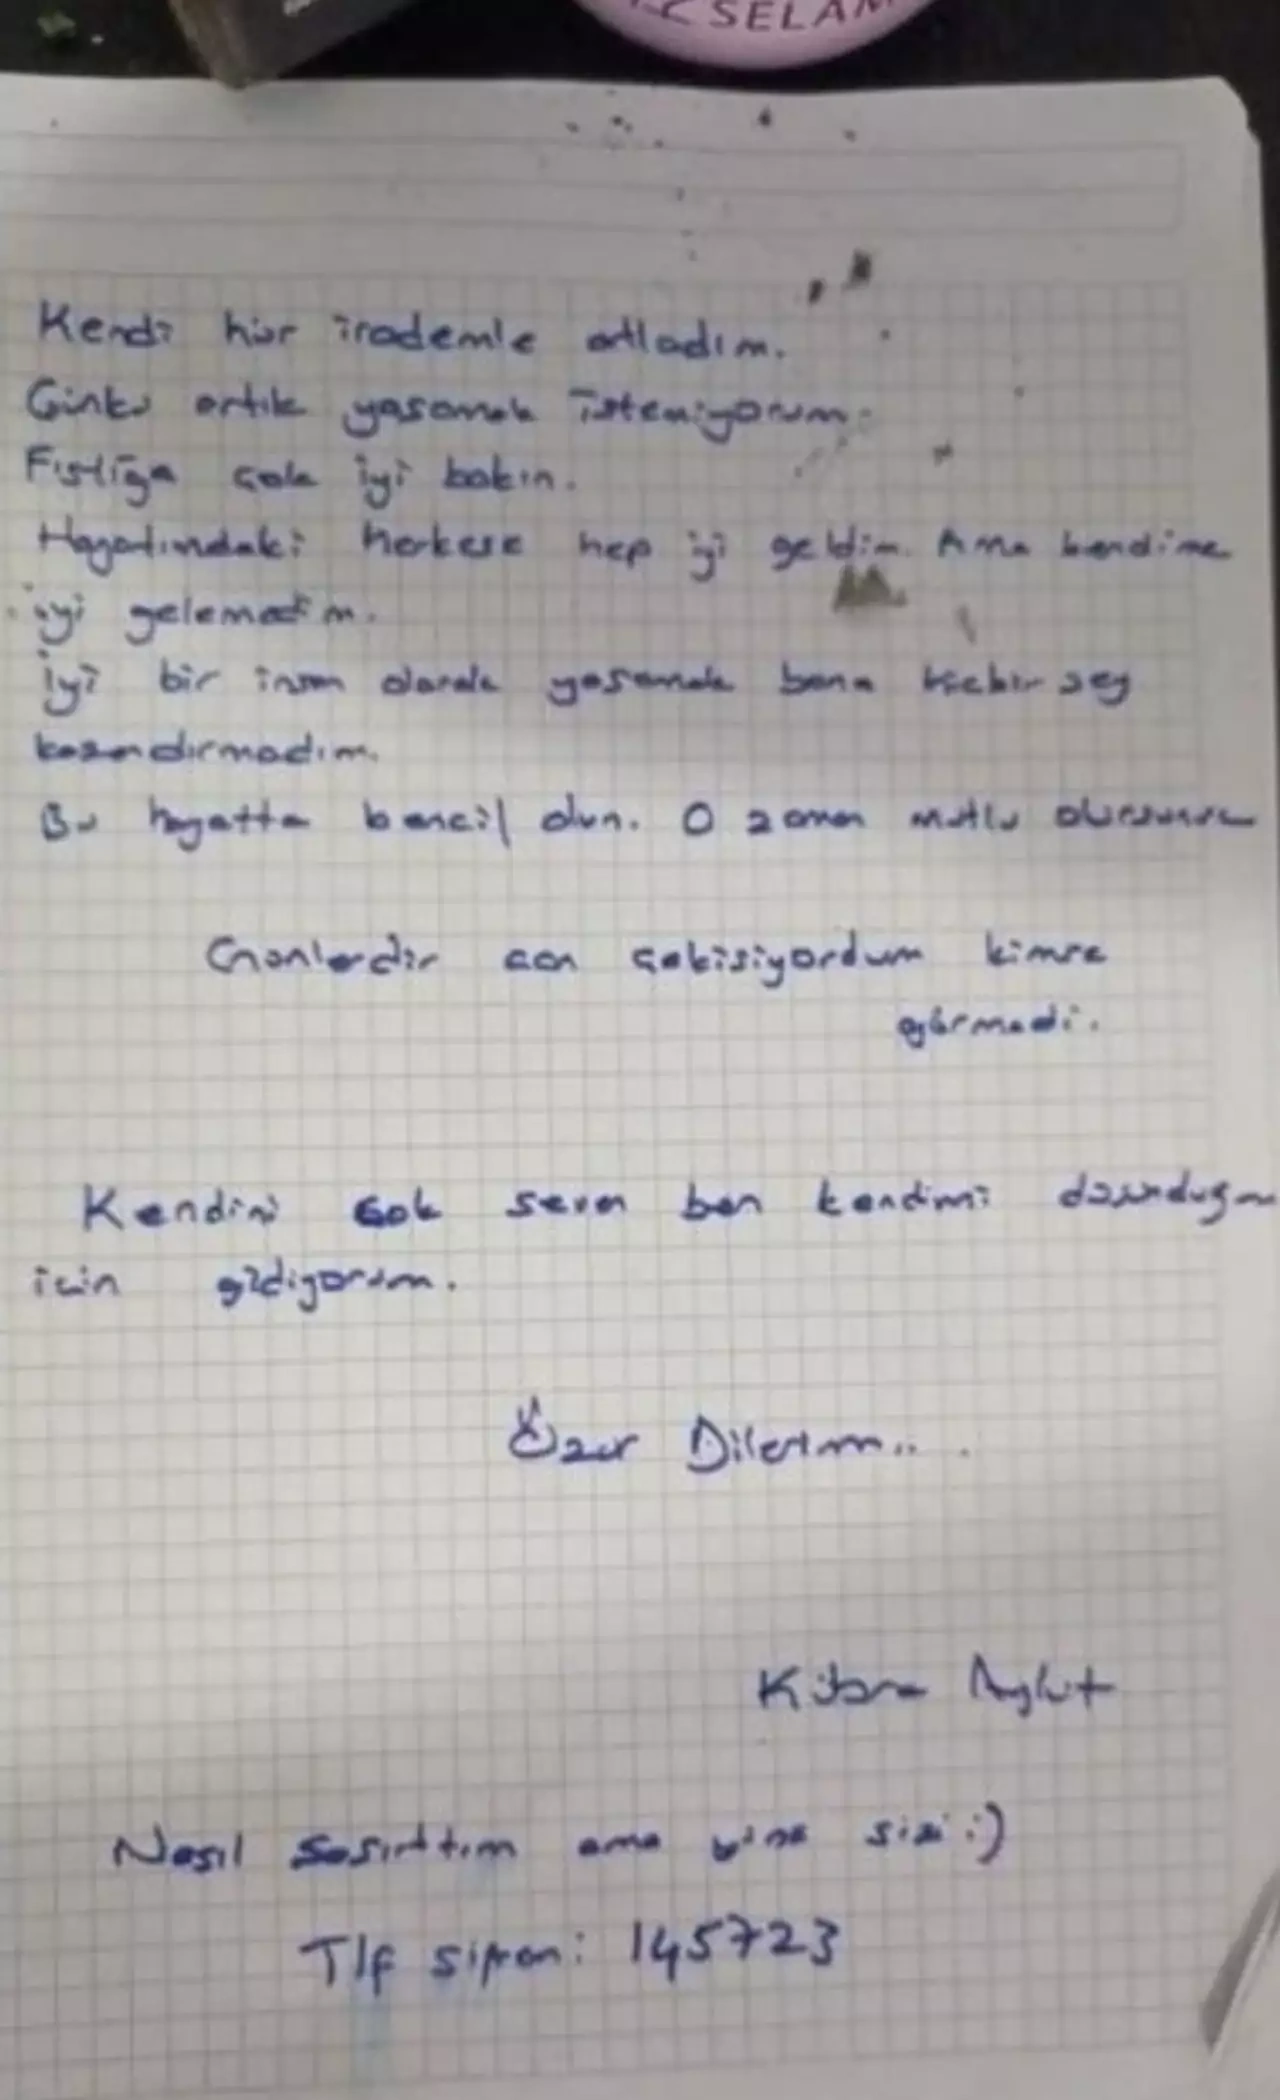 SELAM
Kendi hür irademle atladım.
Çünkü artık yasamak istemiyorum.
Fıstığa çok iyi bakın.
Hayatımdaki herkese hep iyi geldim. Ama kendime
iyi gelemedim.
İyi bir insan olarak yasamak bana hicbir sey
kazandırmadım.
Bu hayatta bencil olun. O zaman mutlu olursunuz
Günlerdir can çekisiyordum kimse
görmedi.
Kendini çok seven ben kendimi düsündugum
icin gidiyorum.
Özür Dilerim...
Kübra Aykut
Nasıl sasırttım ama yine sizi :)
Tlf sifrem: 145723